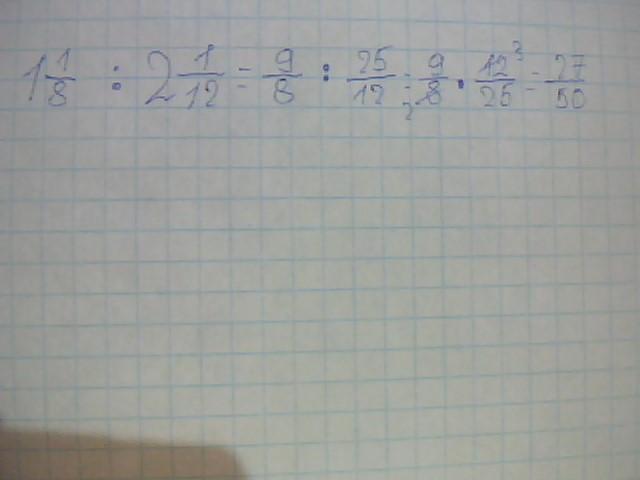 1 1/8 : 2 1/12 = 9/8 : 25/12 = 9/8 2 · 12/25 3 = 27/50